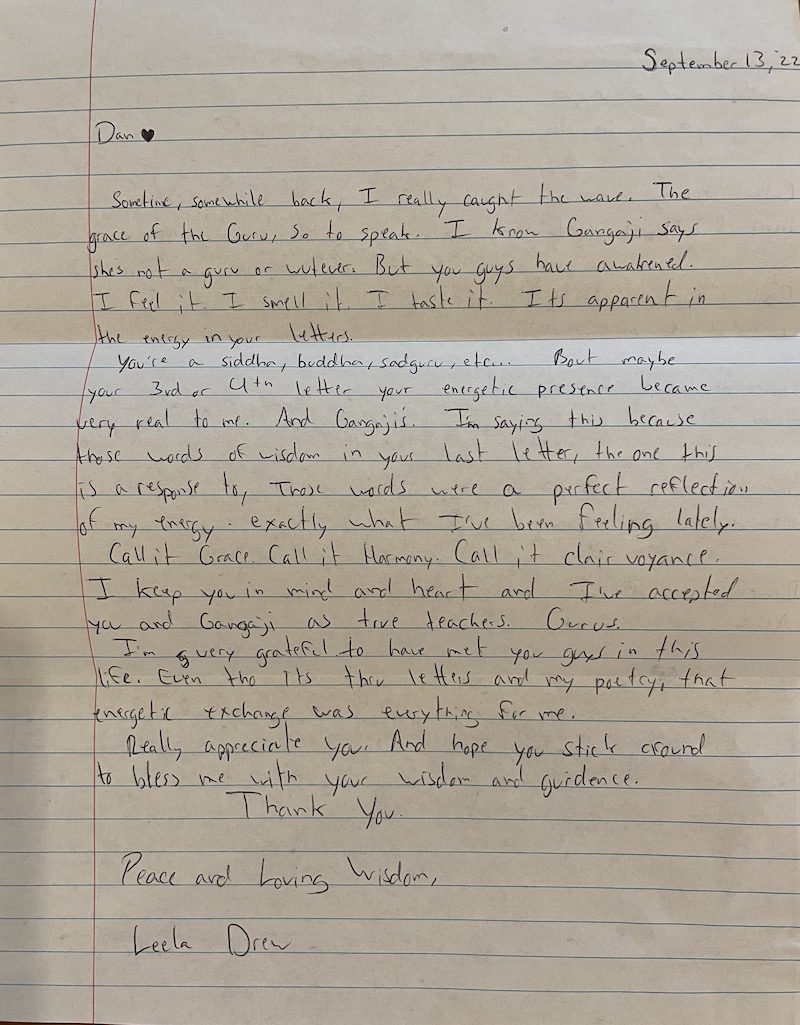 September 13, '22
Dan ♥
Sometime, somewhile back, I really caught the wave. The
grace of the Guru, so to speak. I know Gangaji says
shes not a guru or wutever. But you guys have awakened.
I feel it. I smell it. I taste it. Its apparent in
the energy in your letters.
You're a siddha, buddha, sadguru, etc... Bout maybe
your 3rd or 4th letter your energetic presence became
very real to me. And Gangaji's. I'm saying this because
those words of wisdom in your last letter, the one this
is a response to, Those words were a perfect reflection
of my energy. exactly what I've been feeling lately.
Call it Grace. Call it Harmony. Call it clair voyance.
I keep you in mind and heart and I've accepted
you and Gangaji as true teachers. Gurus.
I'm very grateful to have met you guys in this
life. Even tho its thru letters and my poetry, that
energetic exchange was everything for me.
Really appreciate you. And hope you stick around
to bless me with your wisdom and guidence.
Thank You.
Peace and Loving Wisdom,
Leela Drew